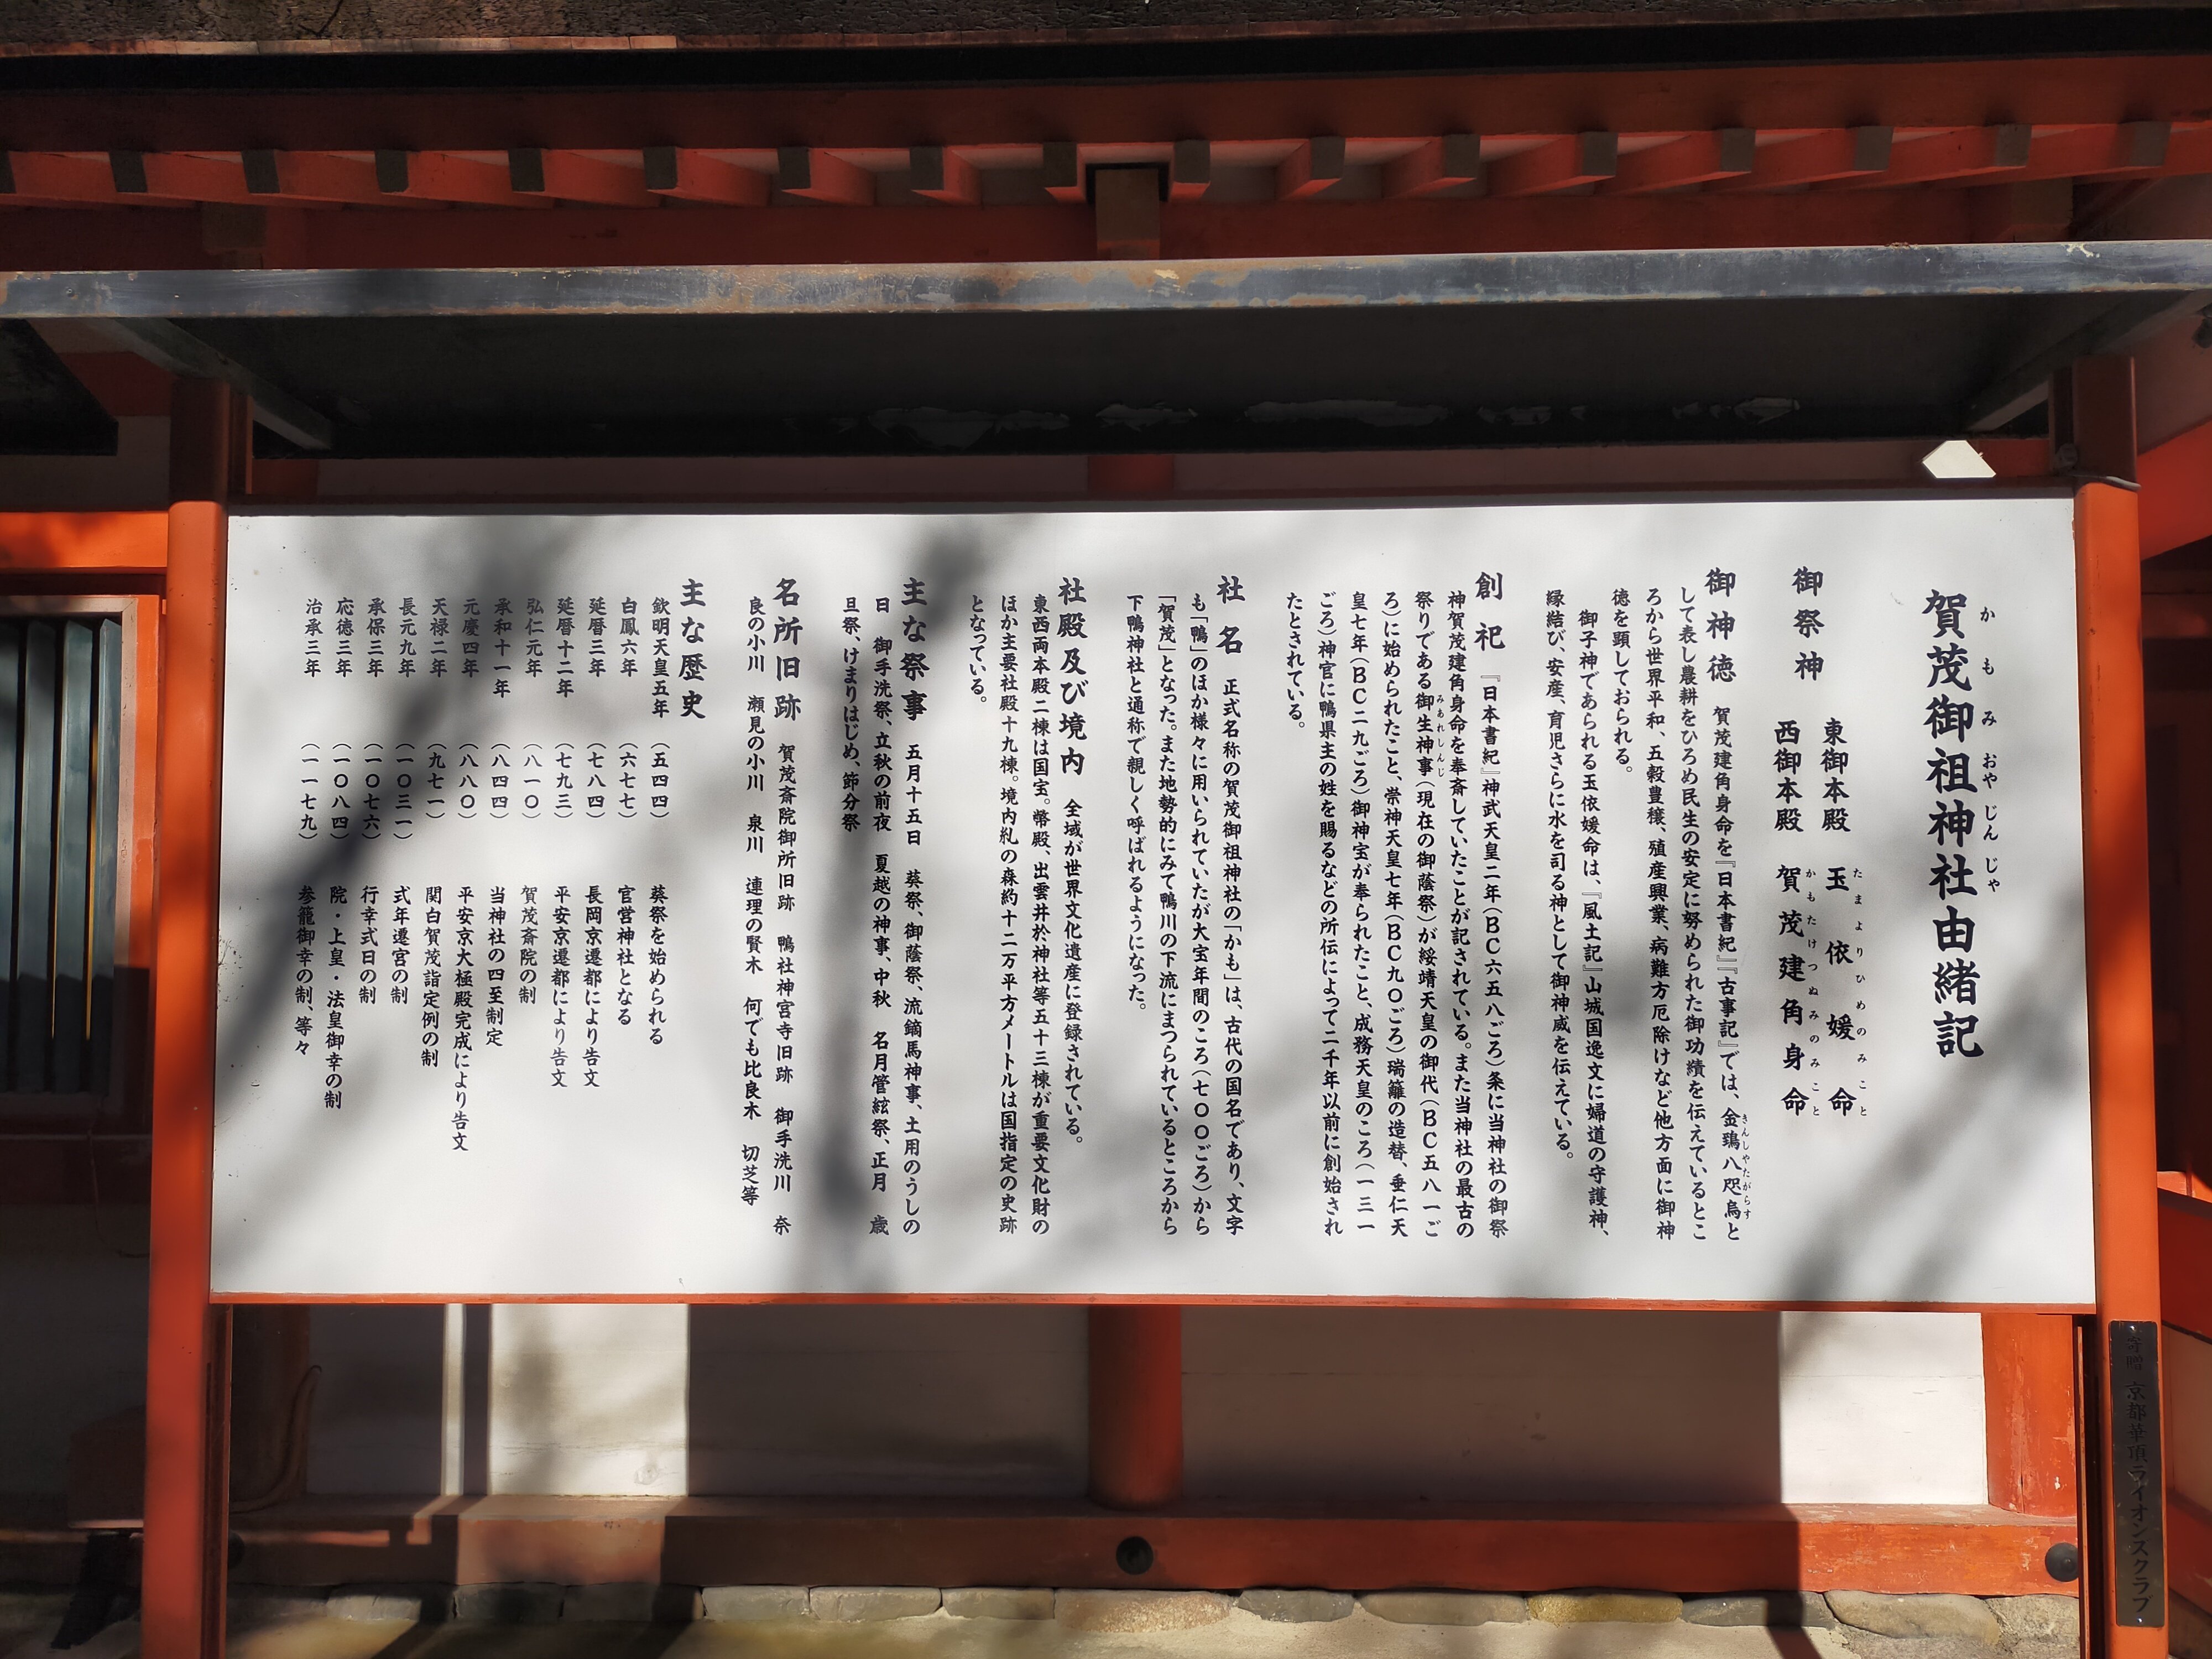 賀茂御祖神社由緒記
かもみおやじんじゃ
御祭神
東御本殿 玉依媛命
たまよりひめのみこと
西御本殿 賀茂建角身命
かもたけつぬみのみこと
御神徳 賀茂建角身命を『日本書紀』『古事記』では、金鵄八咫烏と
きんしやたがらす
して表し農耕をひろめ民生の安定に努められた御功績を伝えているとこ
ろから世界平和、五穀豊穣、殖産興業、病難方厄除けなど他方面に御神
徳を顕しておられる。
御子神であられる玉依媛命は、『風土記』山城国逸文に婦道の守護神、
縁結び、安産、育児さらに水を司る神として御神威を伝えている。
創祀 『日本書紀』神武天皇二年(BC六五八ごろ)条に当神社の御祭
神賀茂建角身命を奉斎していたことが記されている。また当神社の最古の
祭りである御生神事(現在の御蔭祭)が綏靖天皇の御代(BC五八一ご
みあれしんじ
ろ)に始められたこと、崇神天皇七年(BC九〇ごろ)瑞籬の造替、垂仁天
皇七年(BC二九ごろ)御神宝が奉られたこと、成務天皇のころ(一三一
ごろ)神官に鴨県主の姓を賜るなどの所伝によって二千年以前に創始され
たとされている。
社名 正式名称の賀茂御祖神社の「かも」は、古代の国名であり、文字
も「鴨」のほか様々に用いられていたが大宝年間のころ(七〇〇ごろ)から
「賀茂」となった。また地勢的にみて鴨川の下流にまつられているところから
下鴨神社と通称で親しく呼ばれるようになった。
社殿及び境内 全域が世界文化遺産に登録されている。
東西両本殿二棟は国宝。幣殿、出雲井於神社等五十三棟が重要文化財の
ほか主要社殿十九棟。境内糺の森約十二万平方メートルは国指定の史跡
となっている。
主な祭事 五月十五日 葵祭、御蔭祭、流鏑馬神事、土用のうしの
日 御手洗祭、立秋の前夜 夏越の神事、中秋 名月管絃祭、正月 歳
旦祭、けまりはじめ、節分祭
名所旧跡 賀茂斎院御所旧跡 鴨社神宮寺旧跡 御手洗川 奈
良の小川 瀬見の小川 泉川 連理の賢木 何でも比良木 切芝等
主な歴史
欽明天皇五年 (五四四) 葵祭を始められる
白鳳六年 (六七七) 官営神社となる
延暦三年 (七八四) 長岡京遷都により告文
延暦十二年 (七九三) 平安京遷都により告文
弘仁元年 (八一〇) 賀茂斎院の制
承和十一年 (八四四) 当神社の四至制定
元慶四年 (八八〇) 平安京大極殿完成により告文
天禄二年 (九七一) 関白賀茂詣定例の制
長元九年 (一〇三一) 式年遷宮の制
承保三年 (一〇七六) 行幸式日の制
応徳三年 (一〇八四) 院・上皇・法皇御幸の制
治承三年 (一一七九) 参籠御幸の制、等々
寄贈 京都華頂ライオンスクラブ